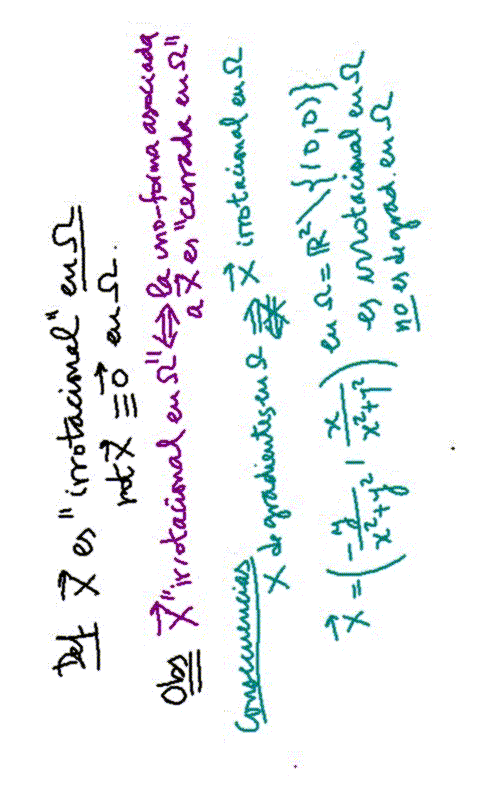 Def X⃗ es "irrotacional" en Ω
rot X⃗ ≡ 0⃗ en Ω.
Obs X⃗ "irrotacional en Ω" ⇔ la uno-forma asociada
a X⃗ es "cerrada en Ω"
Consecuencias
X de gradientes en Ω ⇒ X⃗ irrotacional en Ω
⇍
X⃗ = (-y/(x²+y²), x/(x²+y²)) en Ω = ℝ² \ {(0,0)}
es irrotacional en Ω
no es de grad. en Ω